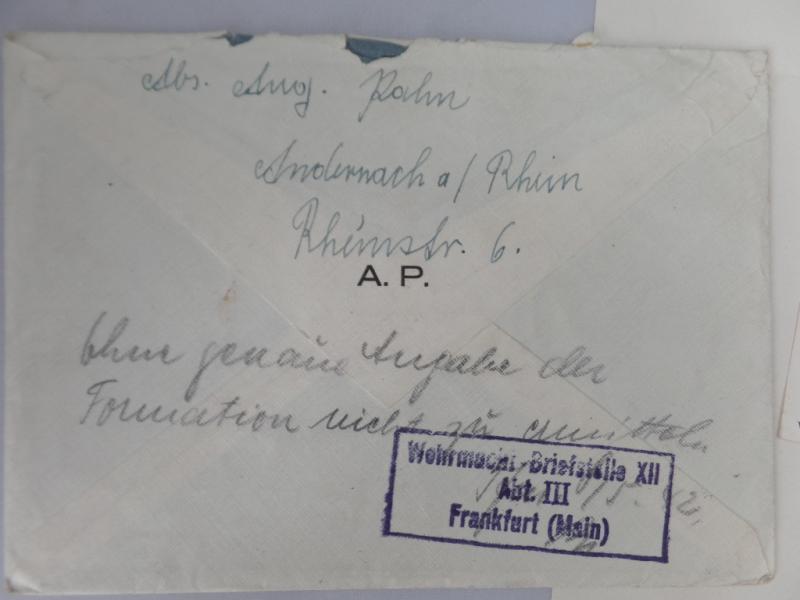 Abs. Aug. Rahn
Andernach a/ Rhein
Rheinstr. 6.
A. P.
Ohne genaue Angabe der
Formation nicht zu ermitteln
Wehrmacht-Briefstelle XII
Abt. III
Frankfurt (Main)